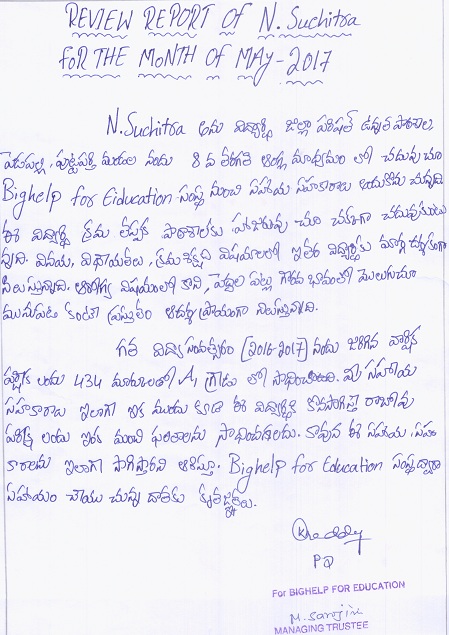 REVIEW REPORT OF N. Suchitra
FOR THE MONTH OF MAY - 2017
N. Suchitra అను విద్యార్థి జిల్లా పరిషత్ ఉన్నత పాఠశాల,
పెడపల్లి, పుట్టపర్తి మండలం నందు 8 వ తరగతి ఆంగ్ల మాధ్యమం లో చదువుచూ
Bighelp for Eiducation సంస్థ నుంచి సహాయ సహకారాలు అందుకొను చున్నది.
ఈ విద్యార్థి క్రమం తప్పక పాఠశాలకు హాజరువు చూ చక్కగా చదువుకుంటు
న్నది. వినయ, విధాయతలు, క్రమశిక్షణ విషయాలలో ఇతర విద్యార్థులకు మార్గ దర్శకంగా
నిలుస్తున్నది. ఆరోగ్య విషయంలో కానీ, పెద్దల పట్ల గౌరవ భావంతో మెలుగుచూ
మునుపటి కంటే ప్రస్తుతం ఆదర్శ ప్రాయంగా నిలుస్తున్నది.
గత విద్యా సంవత్సరం (2016-2017) నందు జరిగిన వార్షిక
పరీక్షలందు 434 మార్కులతో A1 గ్రాడు లో సాధించినది. మీ సహాయ
సహకారాలు ఇలాగే ఇక ముందు కూడా ఈ విద్యార్థికి కొనసాగిస్తే రాబోవు
పరీక్షలందు ఇంకా మంచి ఫలితాలను సాధించగలదు. కావున ఈ సహాయ, సహ
కారాలను ఇలాగే సాగిస్తారని ఆశిస్తూ. Bighelp for Education సంస్థ ద్వారా
సహాయం చేయు చున్న దాతకు కృతజ్ఞతలు.
PD
For BIGHELP FOR EDUCATION
M. Sarojini
MANAGING TRUSTEE